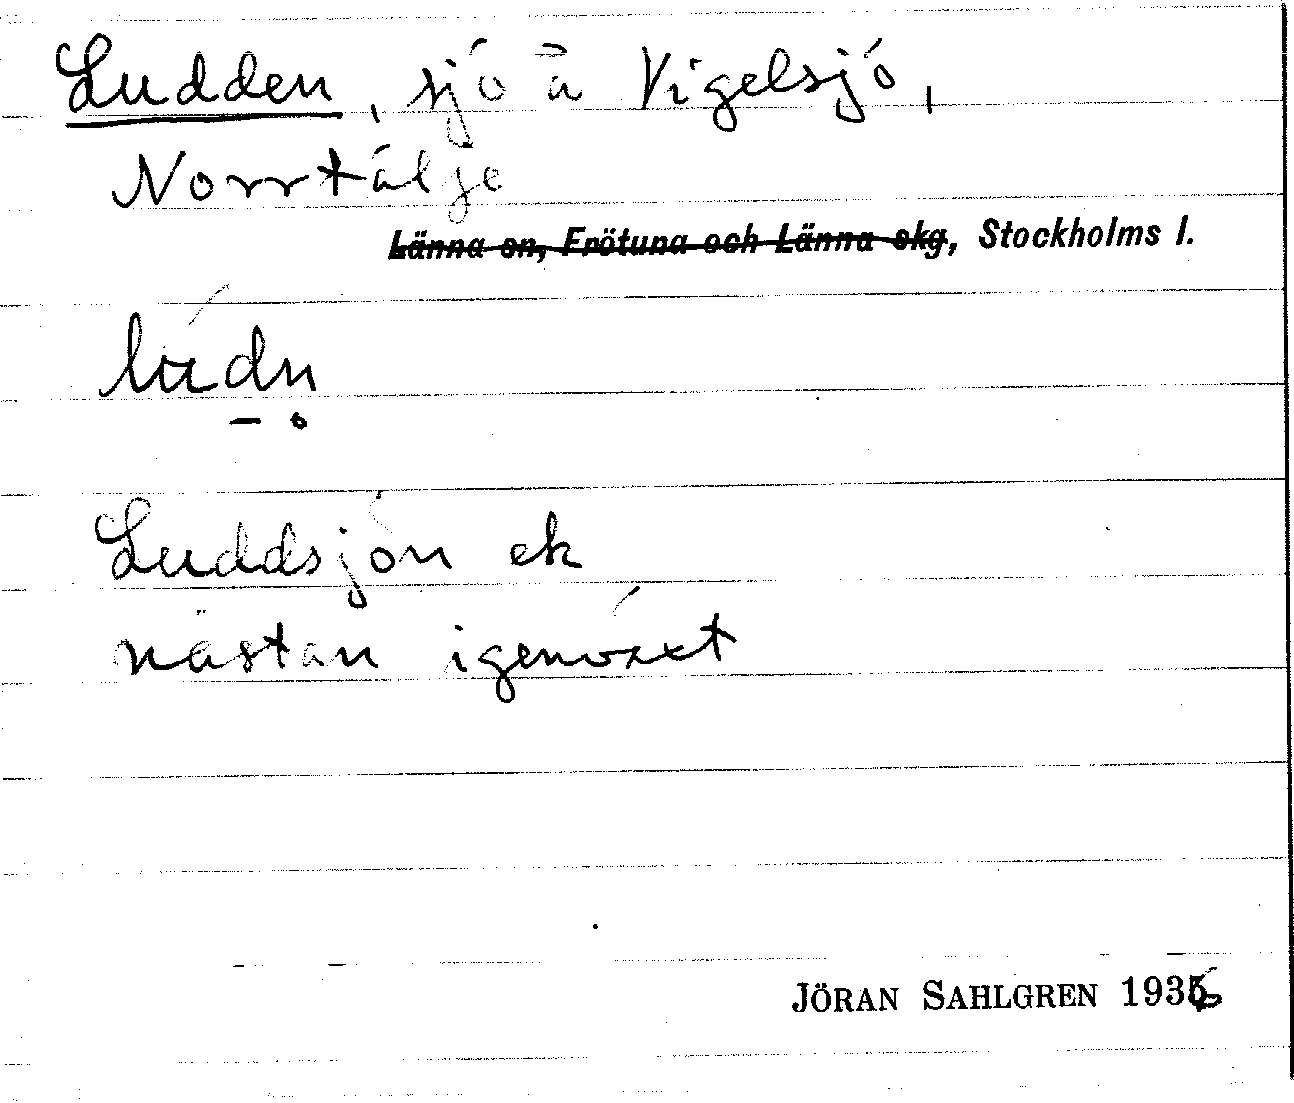 Ludden, sjö å Vigelsjö,
Norrtälje
~~Länna sn, Frötuna och Länna skg~~, Stockholms l.
lúdn̥
Luddsjön ek
nästan igenväxt
JÖRAN SAHLGREN 1936